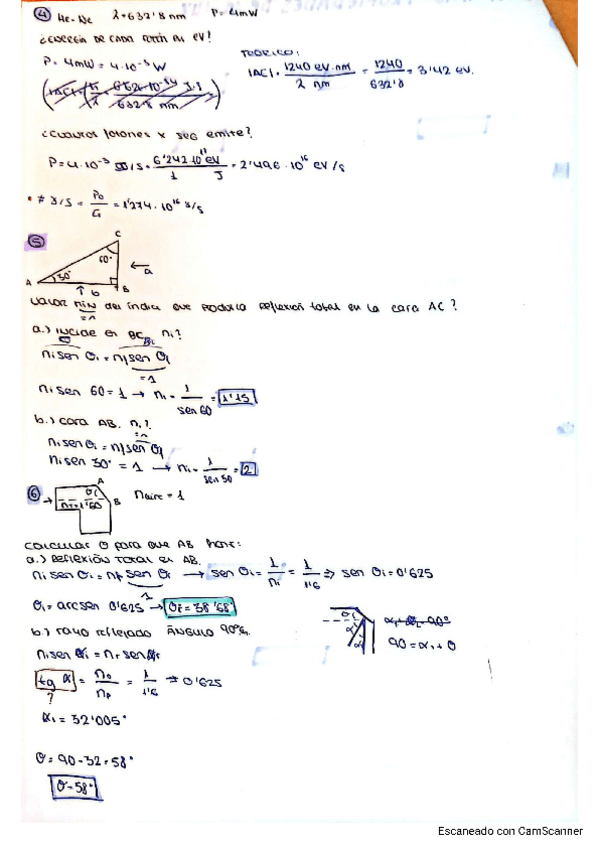 ④ He-Ne λ=632'8 nm P=4mW
¿energía de cada fotón en eV?
P=4mW=4·10⁻³ W
TEÓRICO:
|AC|=1240 eV·nm/λ nm = 1240/632'8 = 3'42 eV.
¿cuantos fotones x seg emite?
P=4·10⁻³ J/s · 6'242·10¹⁸ eV/1 J = 2'496·10¹⁶ eV/s
• # γ/s = Po/G = 1'274·10¹⁶ γ/s
⑤
C
60°
a
A 30° b B
valor min del índice que produzca reflexión total en la cara AC?
=n
a.) incide en BC, ni?
ni sen θi = nf sen θf
=1
ni sen 60 = 1 → ni = 1/sen 60 = 1'15
b.) cara AB. ni?
ni sen θi = nf sen θf
ni sen 30° = 1 → ni = 1/sen 30 = 2
⑥ A θi B ni=1'60 naire = 1
calcular θ para que AB
a.) Reflexión total en AB.
ni sen θi = nf sen θf → sen θi = 1/ni = 1/1'6 ⇒ sen θi = 0'625
1
θi = arcsen 0'625 → θi = 38'68°
b.) rayo reflejado ÁNGULO 90°
α₁+θ=90°
90 = α₁+θ
tg α = no/np = 1/1'6 ⇒ 0'625
?
α₁ = 32'005°
θ = 90-32 = 58°
θ=58°
Escaneado con CamScanner